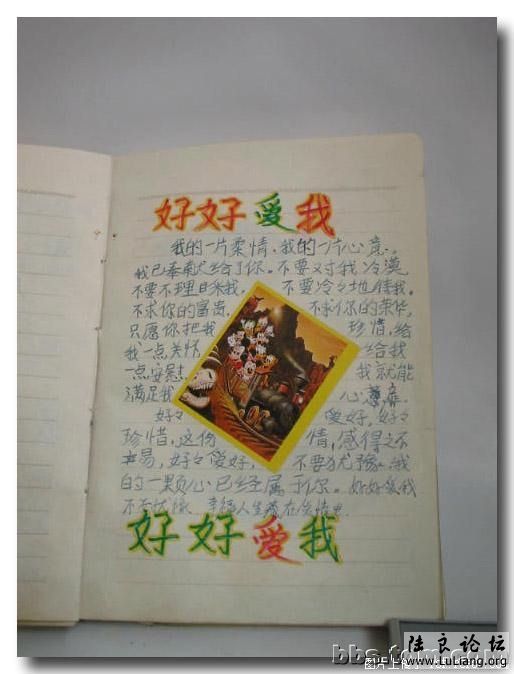 好好爱我
我的一片柔情、我的一片心意。
我已奉献给了你。不要对我冷漠
不要不理日来我。 不要冷冷地待我。
不求你的富贵, 不求你的荣华,
只愿你把我 珍惜,给
我一点关怀 给我
一点安慰 我就能
满足我 心意
好々 爱好,好々
珍惜,这份 情,感得之不
易,好々爱好, 不要犹豫。我
的一颗心已经属于你。好好爱我
不要犹豫
好好爱我
陆良论坛
www.luliang.org